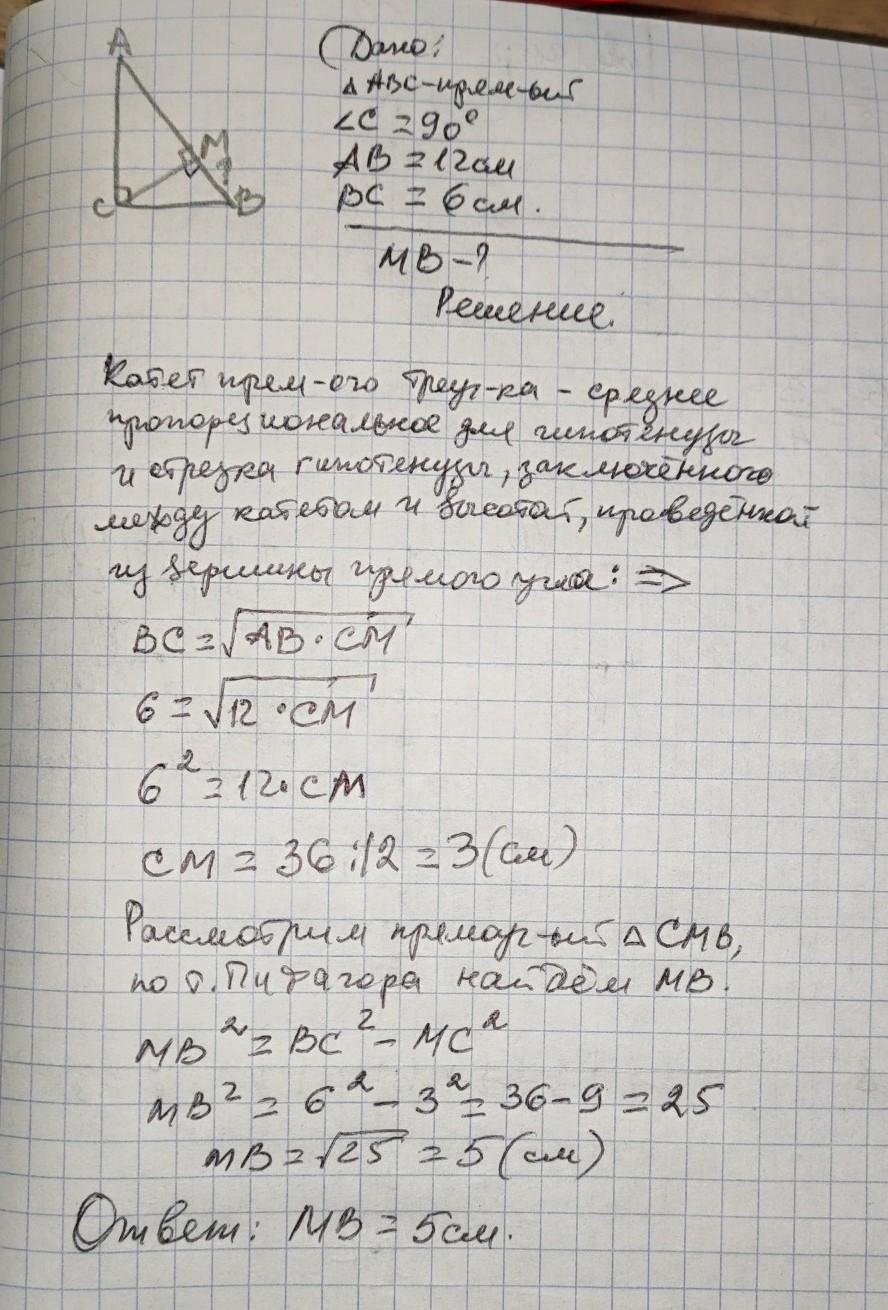 A
M
?
C
B
Дано:
△ABC-прям-ый
∠C = 90°
AB = 12см
BC = 6см.
MB-?
Решение.
Катет прям-ого треуг-ка - среднее
пропорциональное для гипотенузы
и отрезка гипотенузы, заключённого
между катетом и высотой, проведённой
из вершины прямого угла: =>
BC = √AB · CM
6 = √12 · CM
6² = 12 · CM
CM = 36:12 = 3(см)
Рассмотрим прямоуг-ый △CMB,
по т. Пифагора найдём MB.
MB² = BC² - MC²
MB² = 6² - 3² = 36 - 9 = 25
MB = √25 = 5(см)
Ответ: MB = 5см.